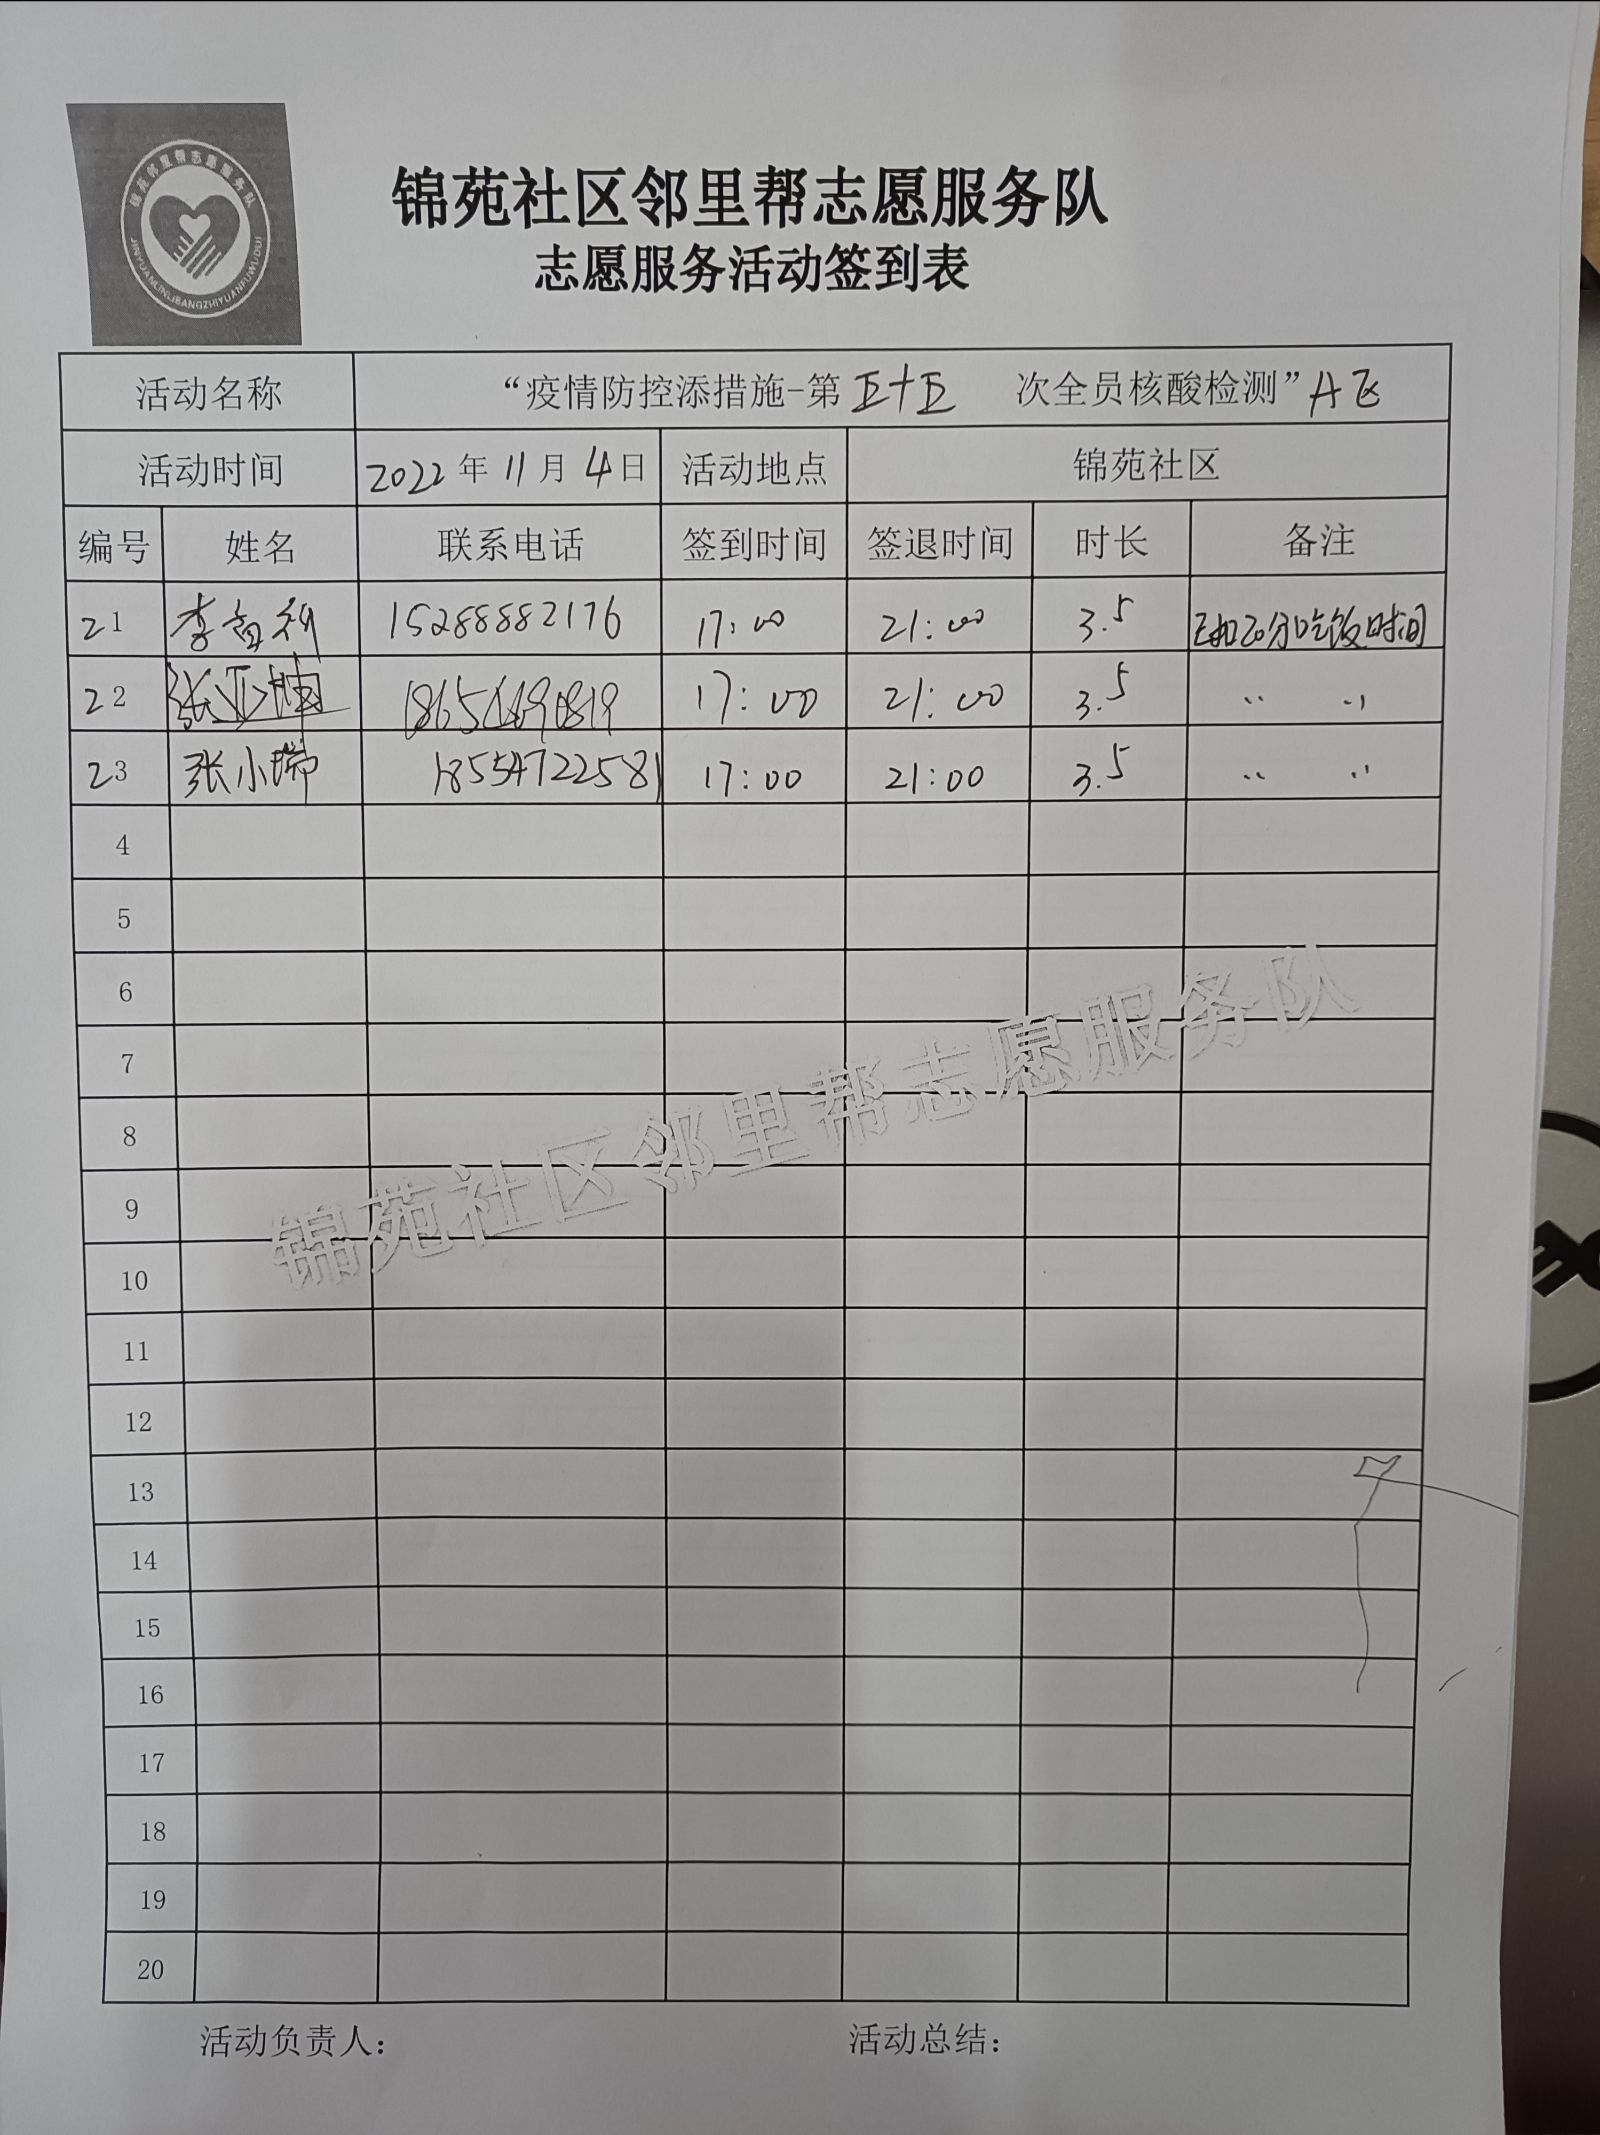 锦苑邻里帮志愿服务队
JINYUANLINLIBANGZHIYUANFUWUDUI
锦苑社区邻里帮志愿服务队
志愿服务活动签到表
活动名称 “疫情防控添措施-第五十五 次全员核酸检测” A区
活动时间 2022年11月4日 活动地点 锦苑社区
编号 姓名 联系电话 签到时间 签退时间 时长 备注
21 李 利 15288882176 17:00 21:00 3.5 已扣20分吃饭时间
22 张亚坤 17:00 21:00 3.5 〃 〃
23 张小瑞 18554722581 17:00 21:00 3.5 〃 〃
4
5
6
7
8
9
10
11
12
13
14
15
16
17
18
19
20
锦苑社区邻里帮志愿服务队
活动负责人： 活动总结：